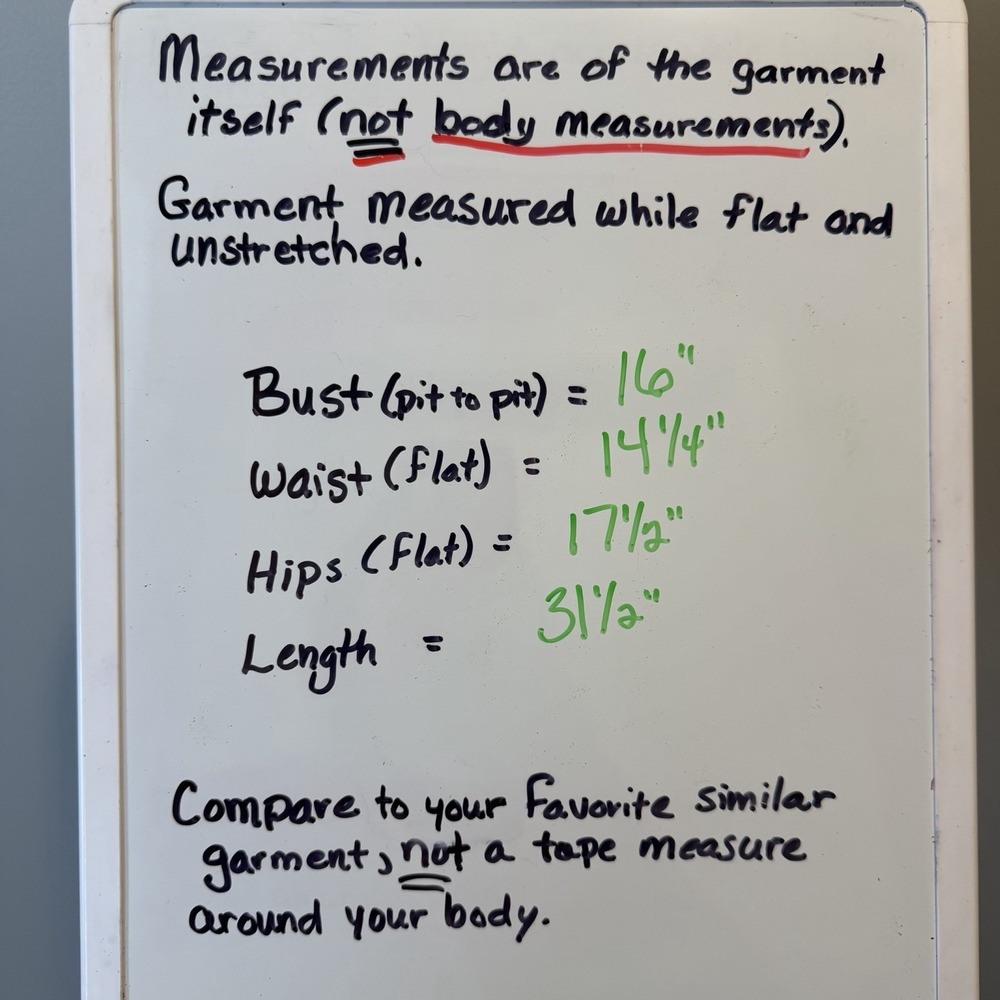 Measurements are of the garment
itself (not body measurements).
Garment measured while flat and
unstretched.
Bust (pit to pit) = 16"
Waist (flat) = 14 1/4"
Hips (flat) = 17 1/2"
Length = 31 1/2"
Compare to your favorite similar
garment, not a tape measure
around your body.